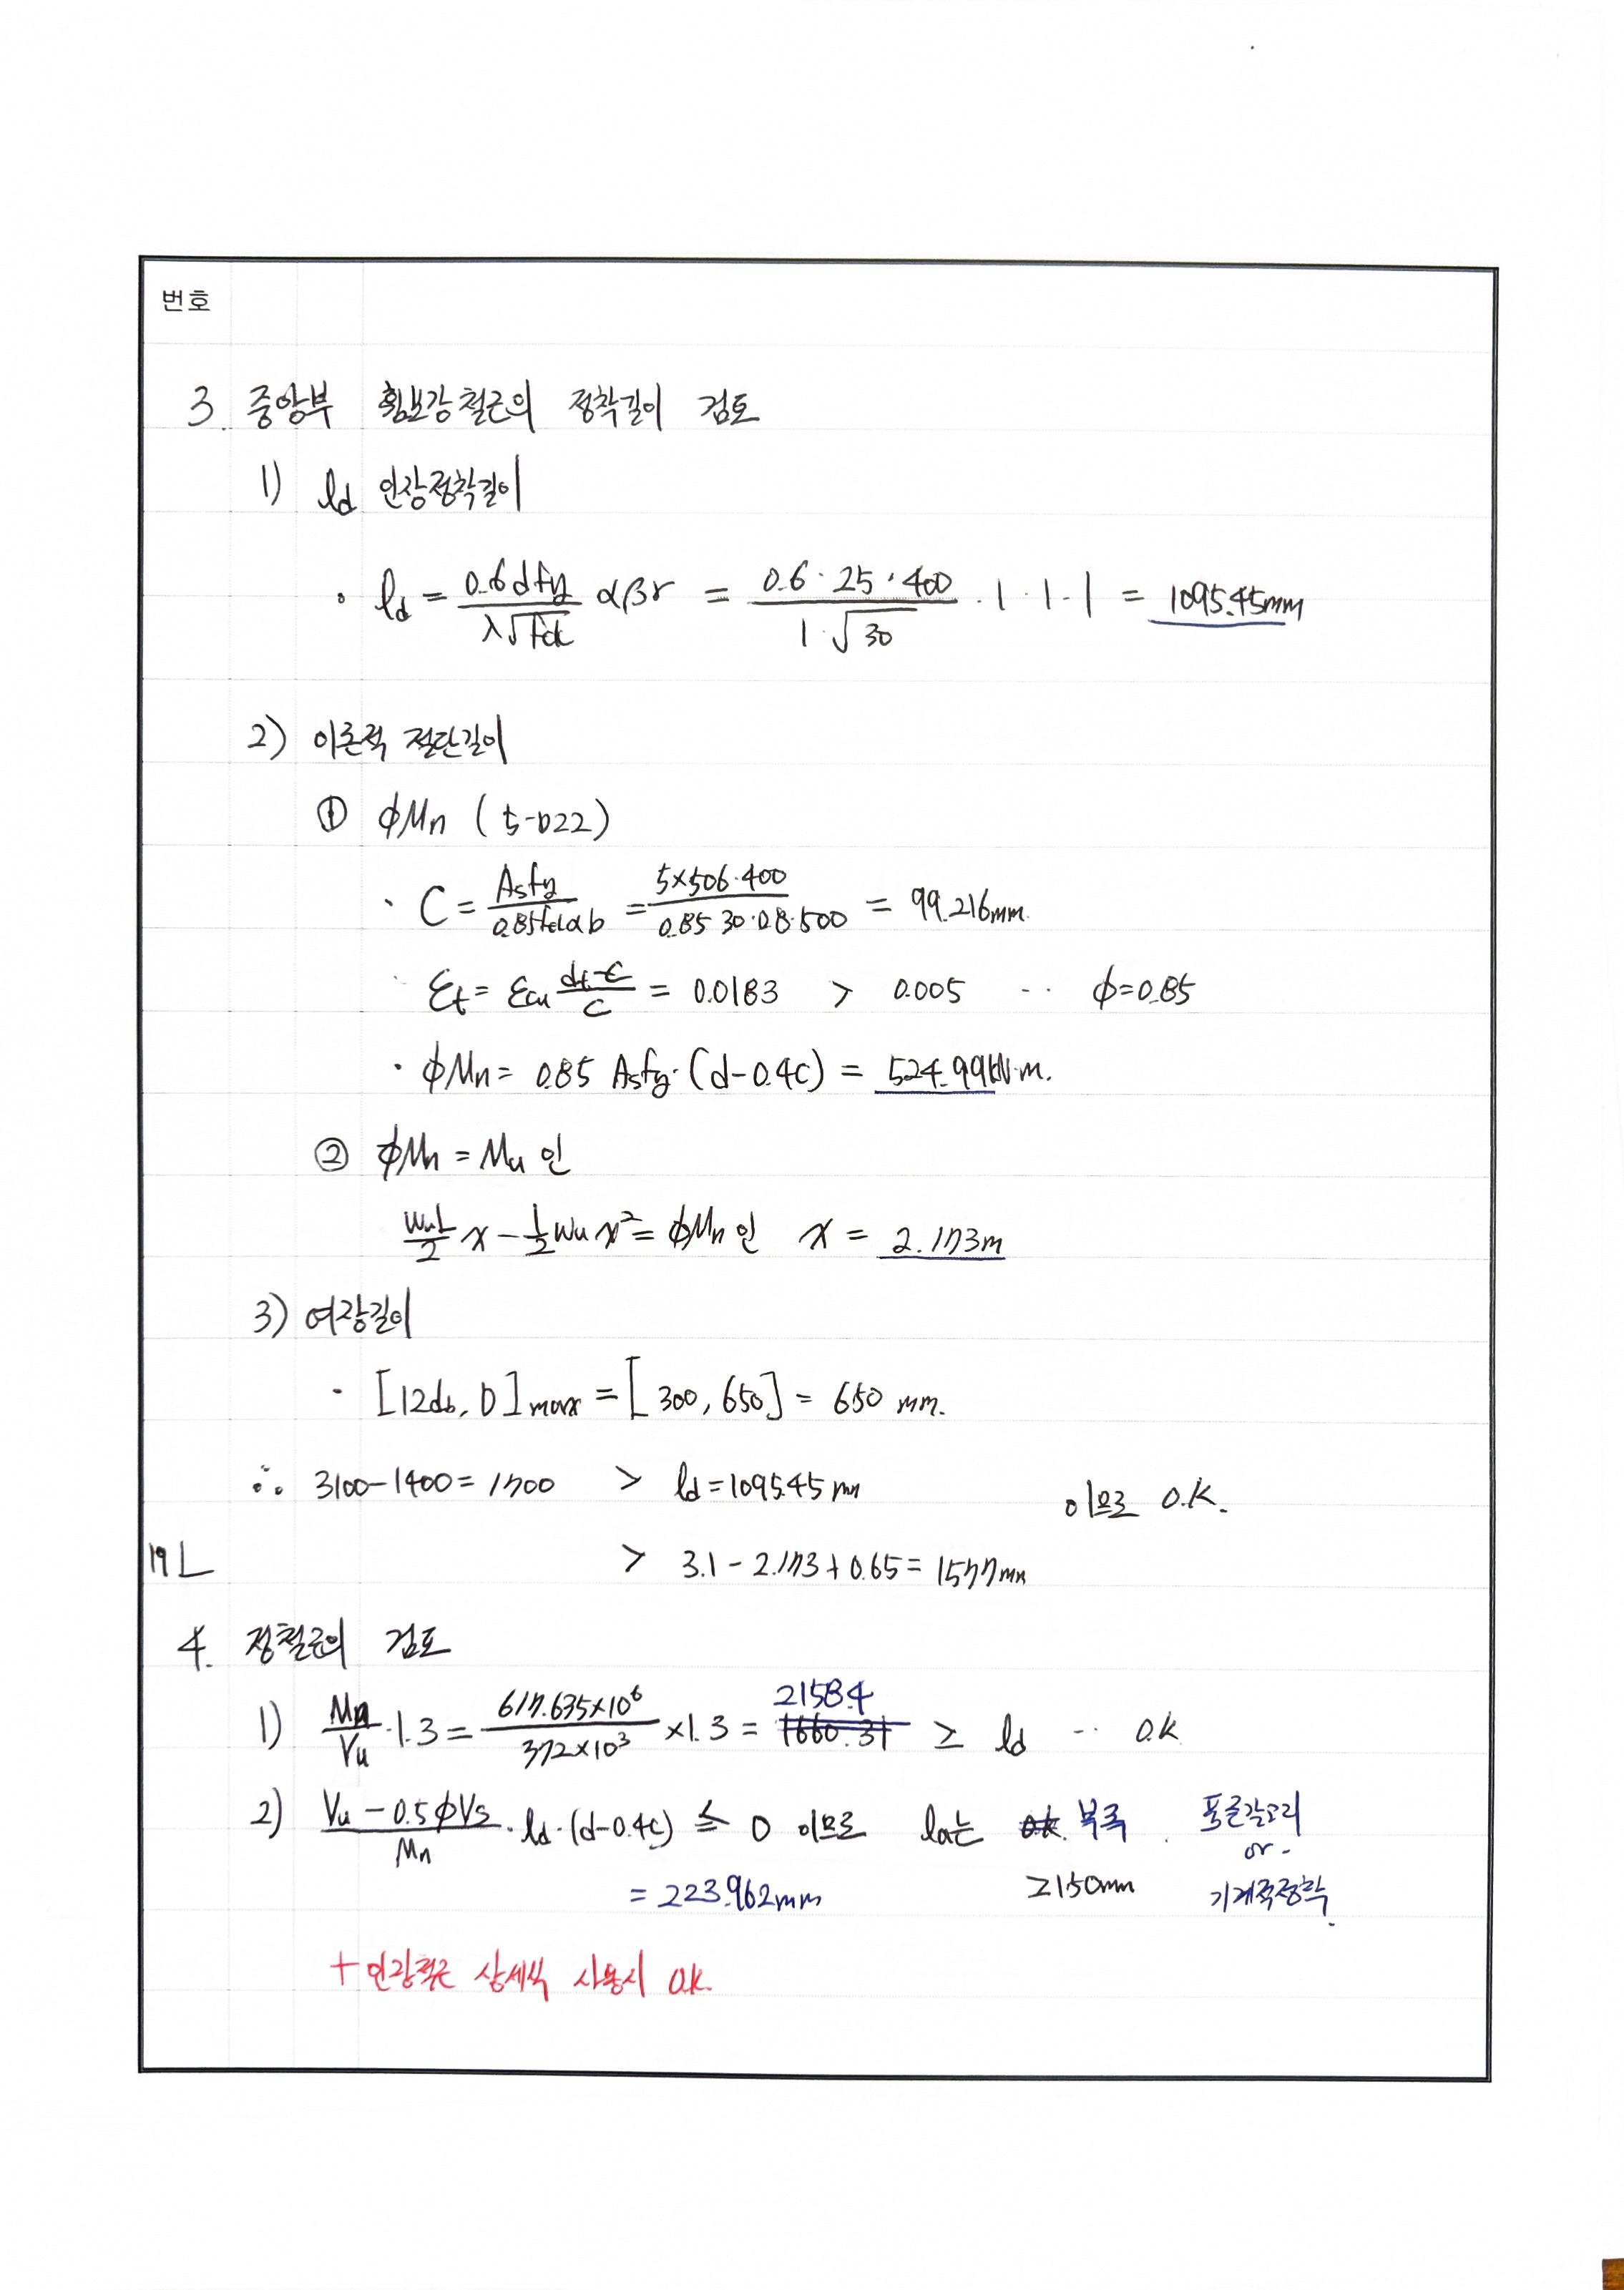 번호
3. 중앙부 휨보강철근의 정착길이 검토
1) ld 인장정착길이
· ld = 0.6dfy / λ√fck αβγ = 0.6·25·400 / 1·√30 ·1·1·1 = 1095.45mm
2) 이론적 절단길이
① ϕMn (5-D22)
· C = Asfy / 0.85fckαb = 5×506·400 / 0.85 30·0.8·500 = 99.216mm
· εt = εcu dt-c / c = 0.0183 > 0.005 ·· ϕ=0.85
· ϕMn = 0.85 Asfy·(d-0.4c) = 524.99kN·m.
② ϕMn = Mu 인
wuL/2 x - 1/2 wu x² = ϕMn 인 x = 2.173m
3) 여장길이
· [12db, D]max = [300, 650] = 650 mm.
∴ 3100-1400 = 1700 > ld = 1095.45 mm 이므로 O.K.
19 L > 3.1 - 2.173 + 0.65 = 1577mm
4. 정철근의 검토
1) Mn/Vu ·1.3 = 617.635×10⁶ / 372×10³ ×1.3 = 1660.31 2158.4 ≥ ld ·· O.K
2) Vu - 0.5ϕVs / Mn · ld·(d-0.4c) ≤ 0 이므로 la는 o.k. 부족. 표준갈고리
or
= 223.962mm ≥150mm 기계적정착.
+ 인장철근 상세식 사용시 O.K.